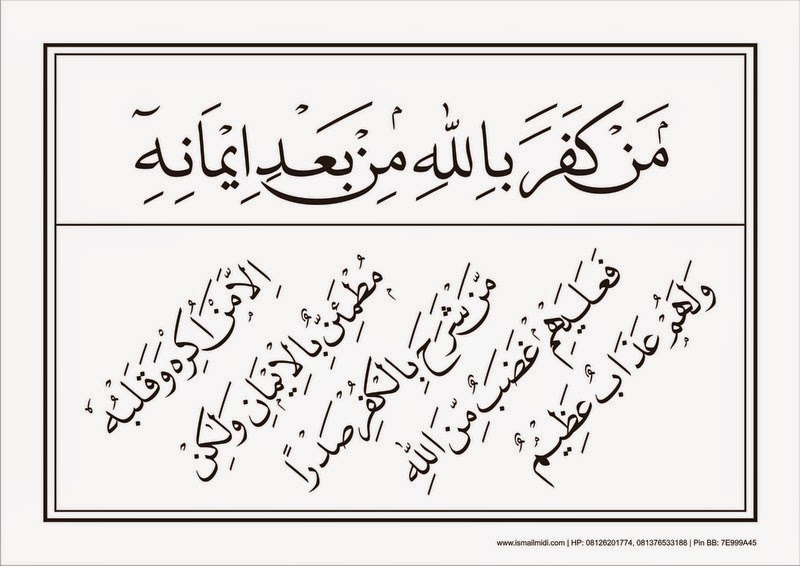 مَنْ كَفَرَ بِاللّٰهِ مِنْۢ بَعْدِ اِيْمَانِهٖٓ
اِلَّا مَنْ اُكْرِهَ وَقَلْبُهٗ
مُطْمَئِنٌّۢ بِالْاِيْمَانِ وَلٰكِنْ
مَّنْ شَرَحَ بِالْكُفْرِ صَدْرًا
فَعَلَيْهِمْ غَضَبٌ مِّنَ اللّٰهِ
وَلَهُمْ عَذَابٌ عَظِيْمٌ
www.ismailmidi.com | HP: 08126201774, 081376533188 | Pin BB: 7E999A45